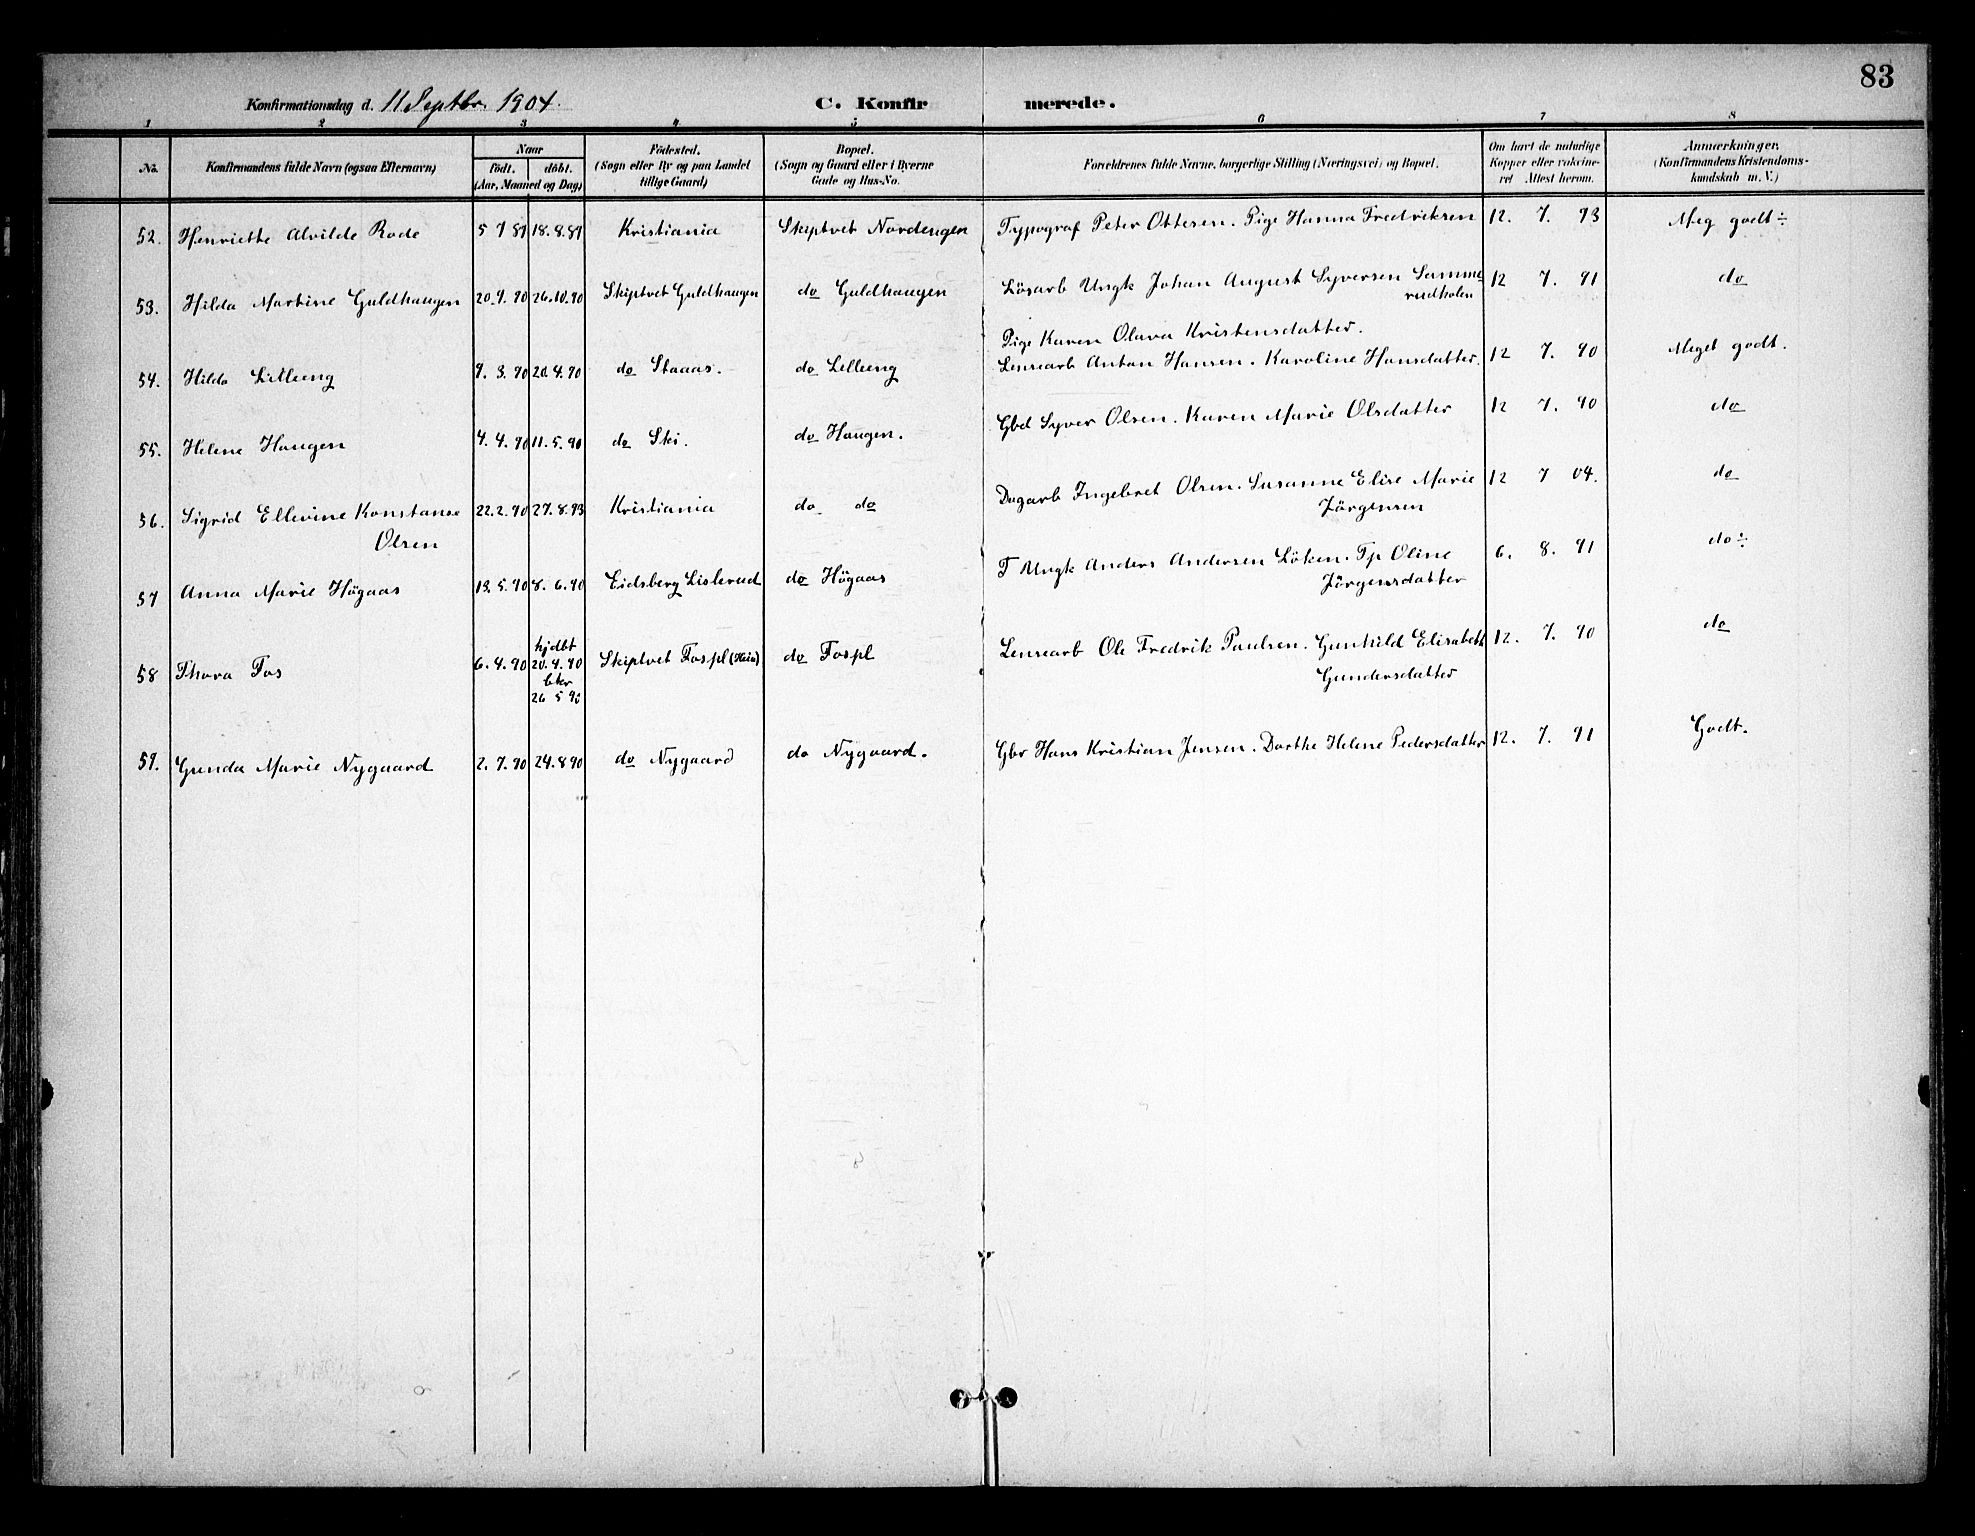 83
Konfirmationsdag d. 11 Septbr. 1904. C. Konfir merede.
1 2 3 4 5 6 7 8
No. Konfirmandens fulde Navn (ogsaa Efternavn) Naar født. døbt. (Aar, Maaned og Dag) Födested. (Sogn eller By og paa Landet tillige Gaard) Bopæl. (Sogn og Gaard eller i Byerne Gade og Hus-No. Forældrenes fulde Navne, borgerlige Stilling (Næringsvei) og Bopæl. Om havt de naturlige Kopper eller vakcineret Attest herom. Anmærkninger. (Konfirmandens Kristendomskundskab m. V.)
52. Henriette Alvilde Rode 5 7 89 18. 8. 89 Kristiania Skiptvet Nordengen Typograf Peter Ottesen. Pige Hanna Fredriksen 12. 7. 93 Meg godt ÷
53. Hilda Martine Guldhaugen 20. 9. 90 26.10.90 Skiptvet Guldhaugen do Guldhaugen Lösarb Ungk Johan August Syversen Samme=
rudholen 12 7. 91 do
Pige Karen Olava Kristensdatter.
54. Hilda Lilleeng 9. 3. 90 20. 4. 90 do Staaas. do Lilleeng Lensearb Anton Hansen. Karoline Hansdatter. 12 7. 90 Meget godt.
55. Helene Haugen 4. 4. 90 11. 5. 90 do Ski. do Haugen. Gbd Syver Olsen. Karen Marie Olsdatter 12 7. 90 do
56. Sigrid Ellevine Konstanse 22. 2. 90 27. 8. 93 Kristiania do do Dagarb Ingebret Olsen. Susanne Elise Marie 12 7 04. do
Olsen Jörgensen
57 Anna Marie Högaas 13. 5. 90 8. 6. 90 Eidsberg Lislerud do Högaas T Ungk Anders Andersen Löken. Tp Oline 6. 8. 91 do ÷
Jörgensdatter
58 Thora Fos 6. 4. 90 hjdbt
20. 4. 90
bkr
26 5 90 Skiptvet Fospl (Heia) do Fospl Lensearb Ole Fredrik Paulsen. Gunhild Elisabeth 12. 7. 90 do
Gundersdatter
59. Gunda Marie Nygaard 2. 7. 90 24. 8 90 do Nygaard do Nygaard. Gbr Hans Kristian Jensen. Dorthe Helene Pedersdatter 12. 7. 91 Godt.